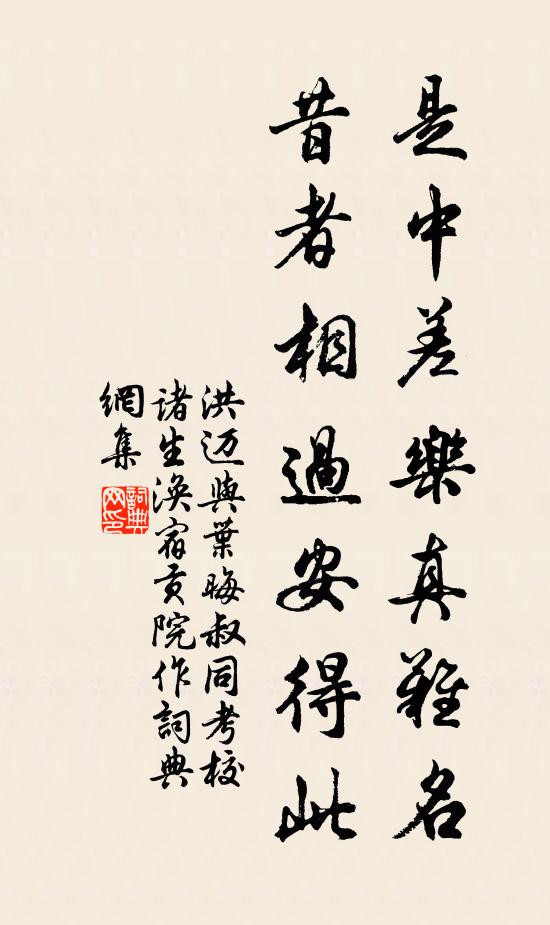 是中差樂真難名
昔者相過安得此
洪迈與葉晦叔同考校
诸生渙宿貢院作詞典
網集
詞典網印